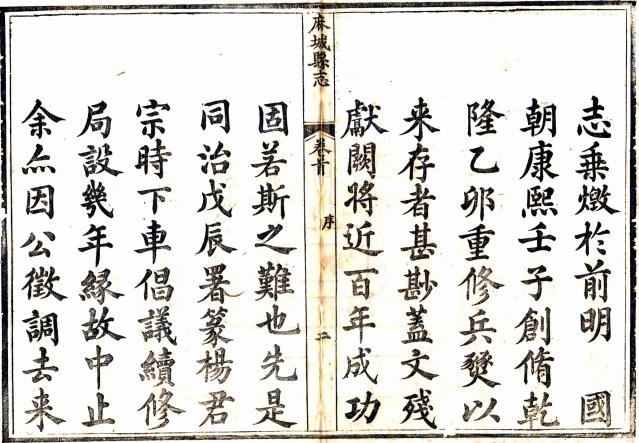 志乗燬於前明　國
朝康熙壬子創脩乾
隆乙卯重修兵燹以
来存者甚尠蓋文殘
獻闕將近百年成功
麻城縣志
卷首
序
二
固若斯之難也先是
同治戊辰署篆楊君
宗時下車倡議續修
局設幾年緣故中止
余亦因公徵調去来